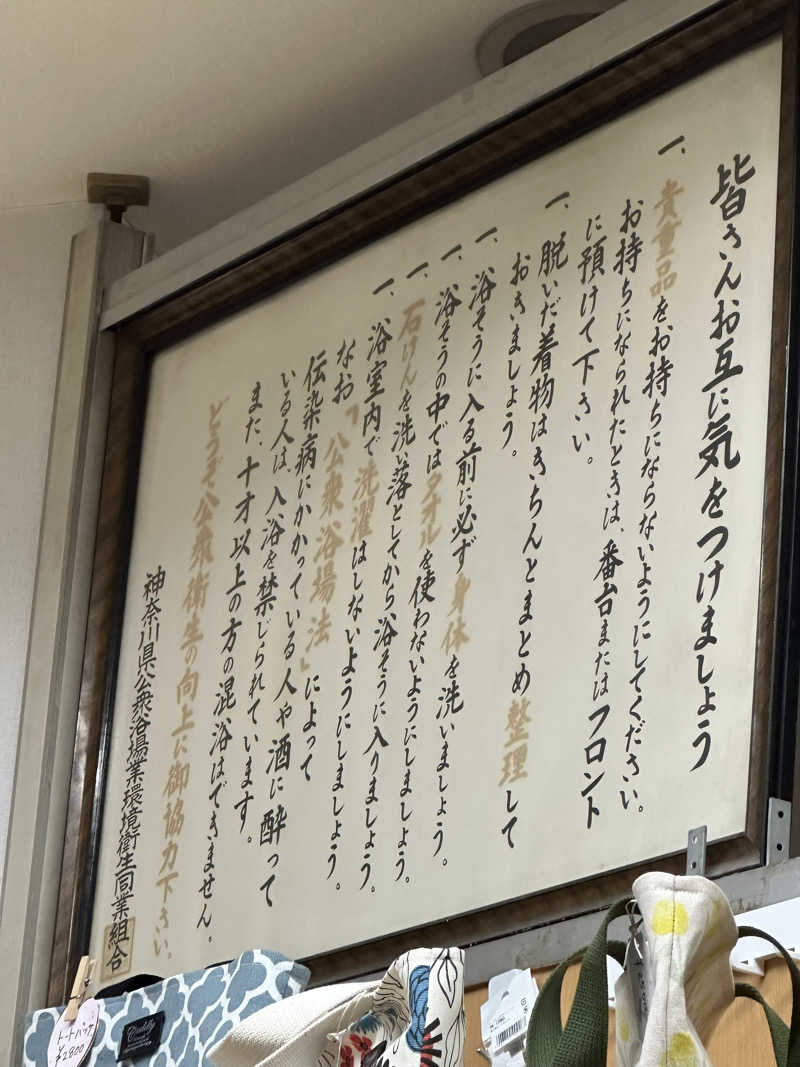 皆さんお互に気をつけましょう
一、貴重品をお持ちにならないようにしてください。
お持ちになられたときは、番台またはフロント
に預けて下さい。
一、脱いだ着物はきちんとまとめ整理して
おきましょう。
一、浴そうに入る前に必ず身体を洗いましょう。
一、浴そうの中ではタオルを使わないようにしましょう。
一、石けんを洗い落としてから浴そうに入りましょう。
一、浴室内で洗濯はしないようにしましょう。
なお「公衆浴場法」によって
伝染病にかかっている人や酒に酔って
いる人は、入浴を禁じられています。
また、十才以上の方の混浴はできません。
どうぞ公衆衛生の向上に御協力下さい。
神奈川県公衆浴場業環境衛生同業組合
トートバッグ
¥2800